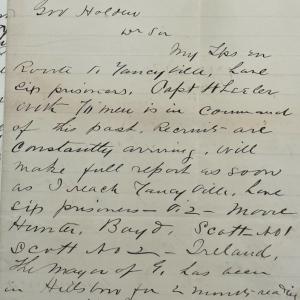 Gov Holden
Dr Sir
My Tps en
Route to Yanceyville, have
six prisoners. Capt Wheeler
with 70 men is in command
of this post. Recruits are
Constantly arriving. Will
make full report as soon
as I reach Yanceyville, have
six prisoners - Viz - Moore
Hunter, Boyd, Scott No 1
Scott No 2 - Ireland,
The Mayor of G. has been
in Hillsboro for 2